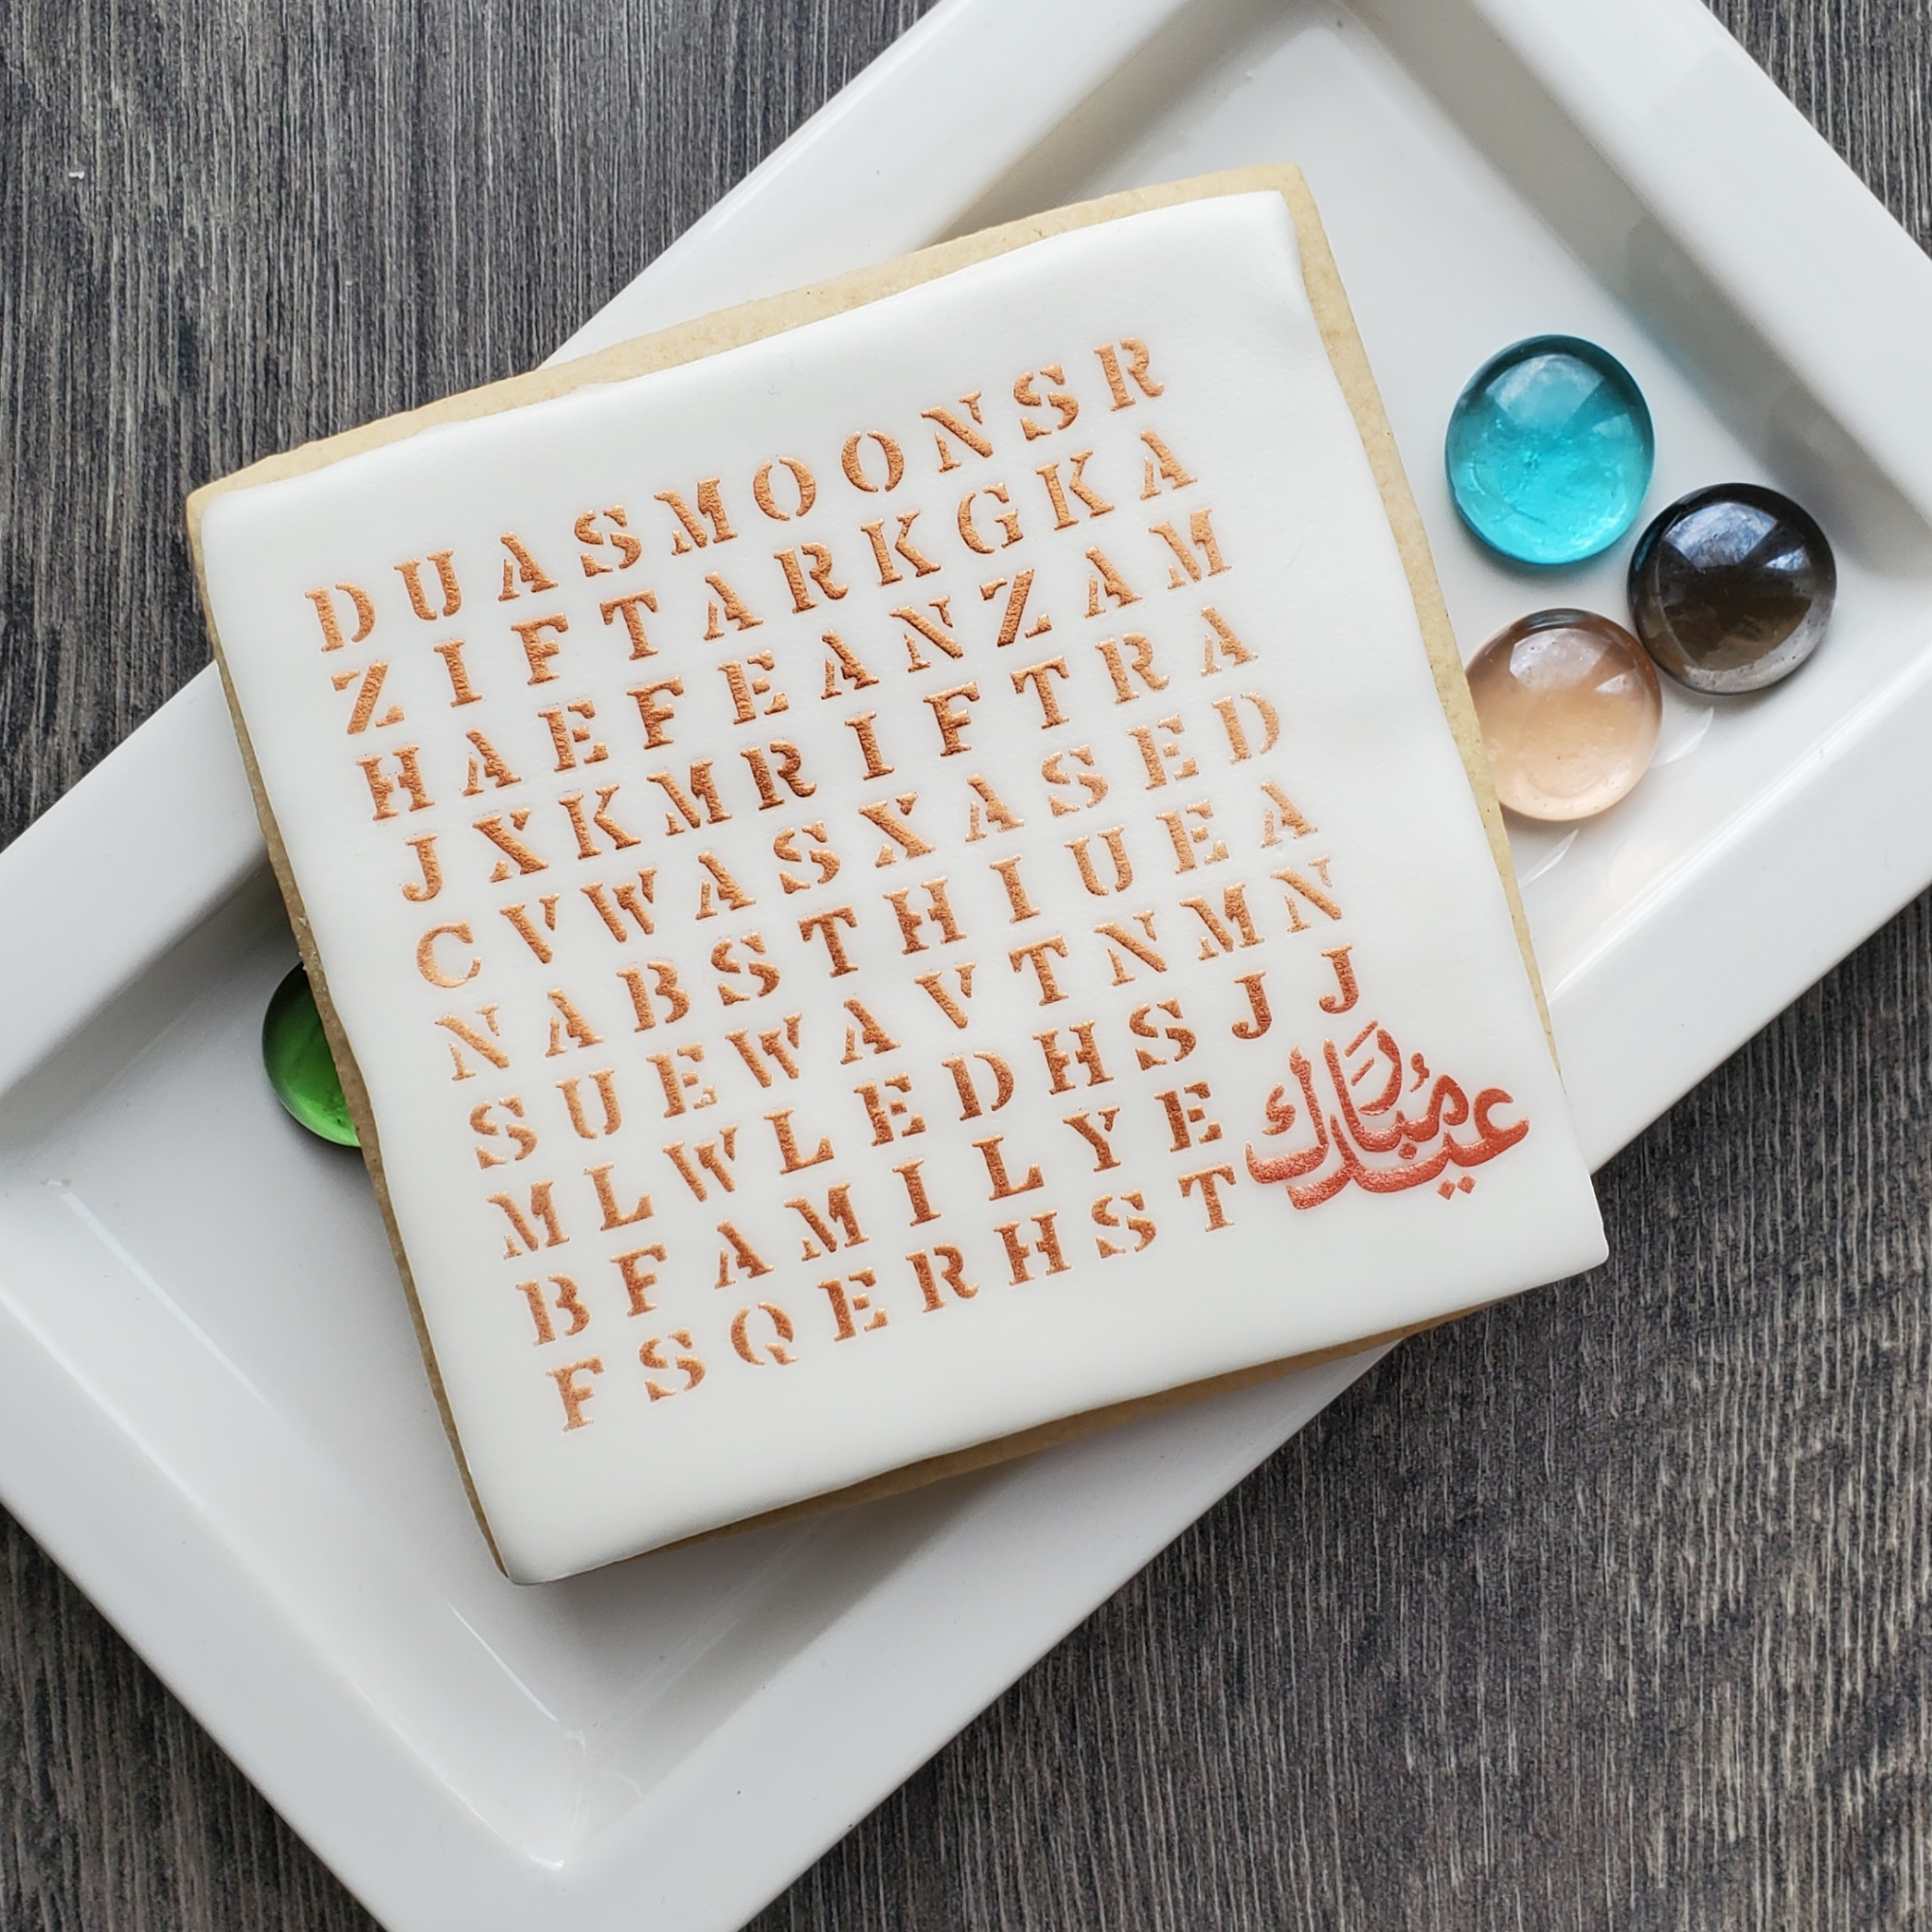 D U A S M O O N S R
Z I F T A R K G K A
H A E F E A N Z A M
J X K M R I F T R A
C V W A S X A S E D
N A B S T H I U E A
S U E W A V T N M N
M L W L E D H S J J
B F A M I L Y E
F S Q E R H S T
عيد مُبارك